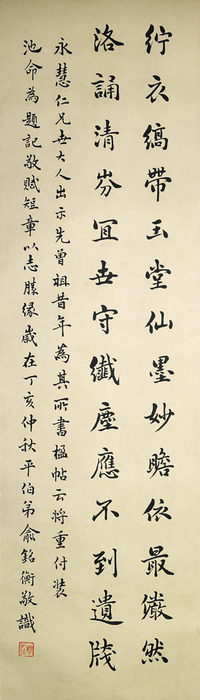 紵衣縞帶玉堂仙墨妙瞻依最儼然
洛誦清芬冝世守纖塵應不到遺牋
永慧仁兄世大人出示先曾祖昔年為其所書楹帖云將重付裝
池命為題記敬賦短章以志勝緣歲在丁亥仲秋平伯弟俞銘衡敬識